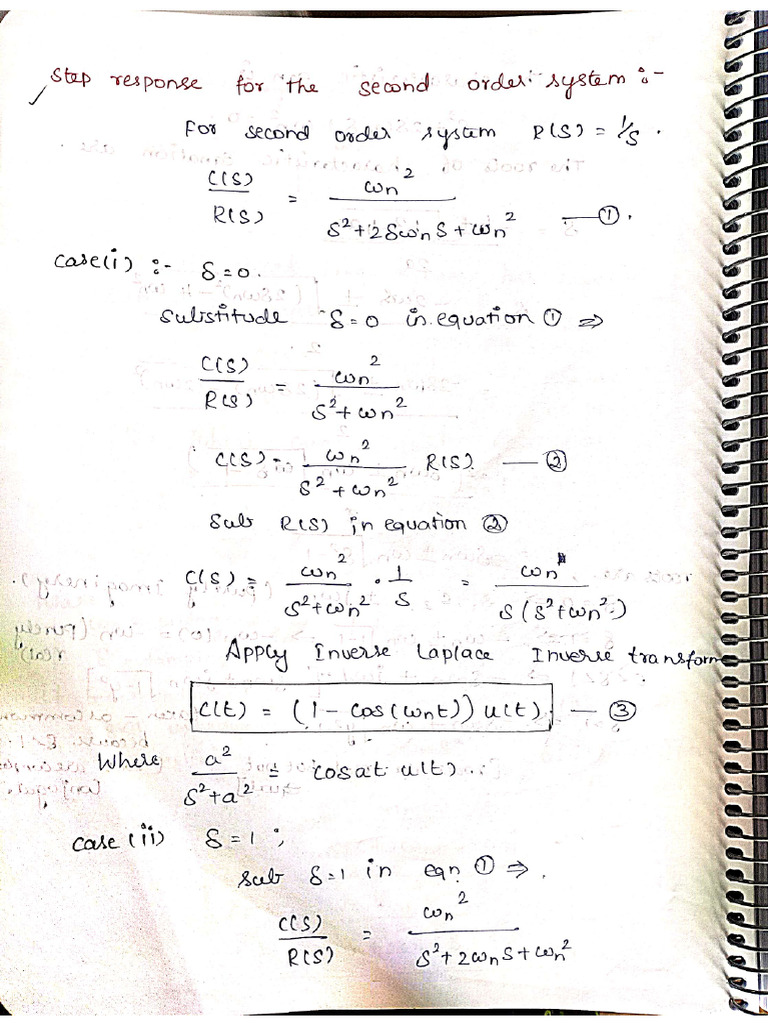 Step response for the second order system :-
For second order system R(S) = 1/S .
C(S)/R(S) = ωn²/(S²+2δωnS+ωn²) — ①.
case(i) :- δ=0.
Substitude δ=0 in equation ① ⇒
C(S)/R(S) = ωn²/(S²+ωn²)
C(S) = ωn²/(S²+ωn²) R(S). — ②
Sub R(S) in equation ②
C(S) = ωn²/(S²+ωn²) · 1/S = ωn/(S(S²+ωn²))
Apply Inverse Laplace Inverse transform
C(t) = (1 - cos(ωnt)) u(t). — ③
Where a²/(S²+a²) = cosat u(t).
case (ii) δ=1 ;
Sub δ=1 in eqn ① ⇒.
C(S)/R(S) = ωn²/(S²+2ωnS+ωn²)